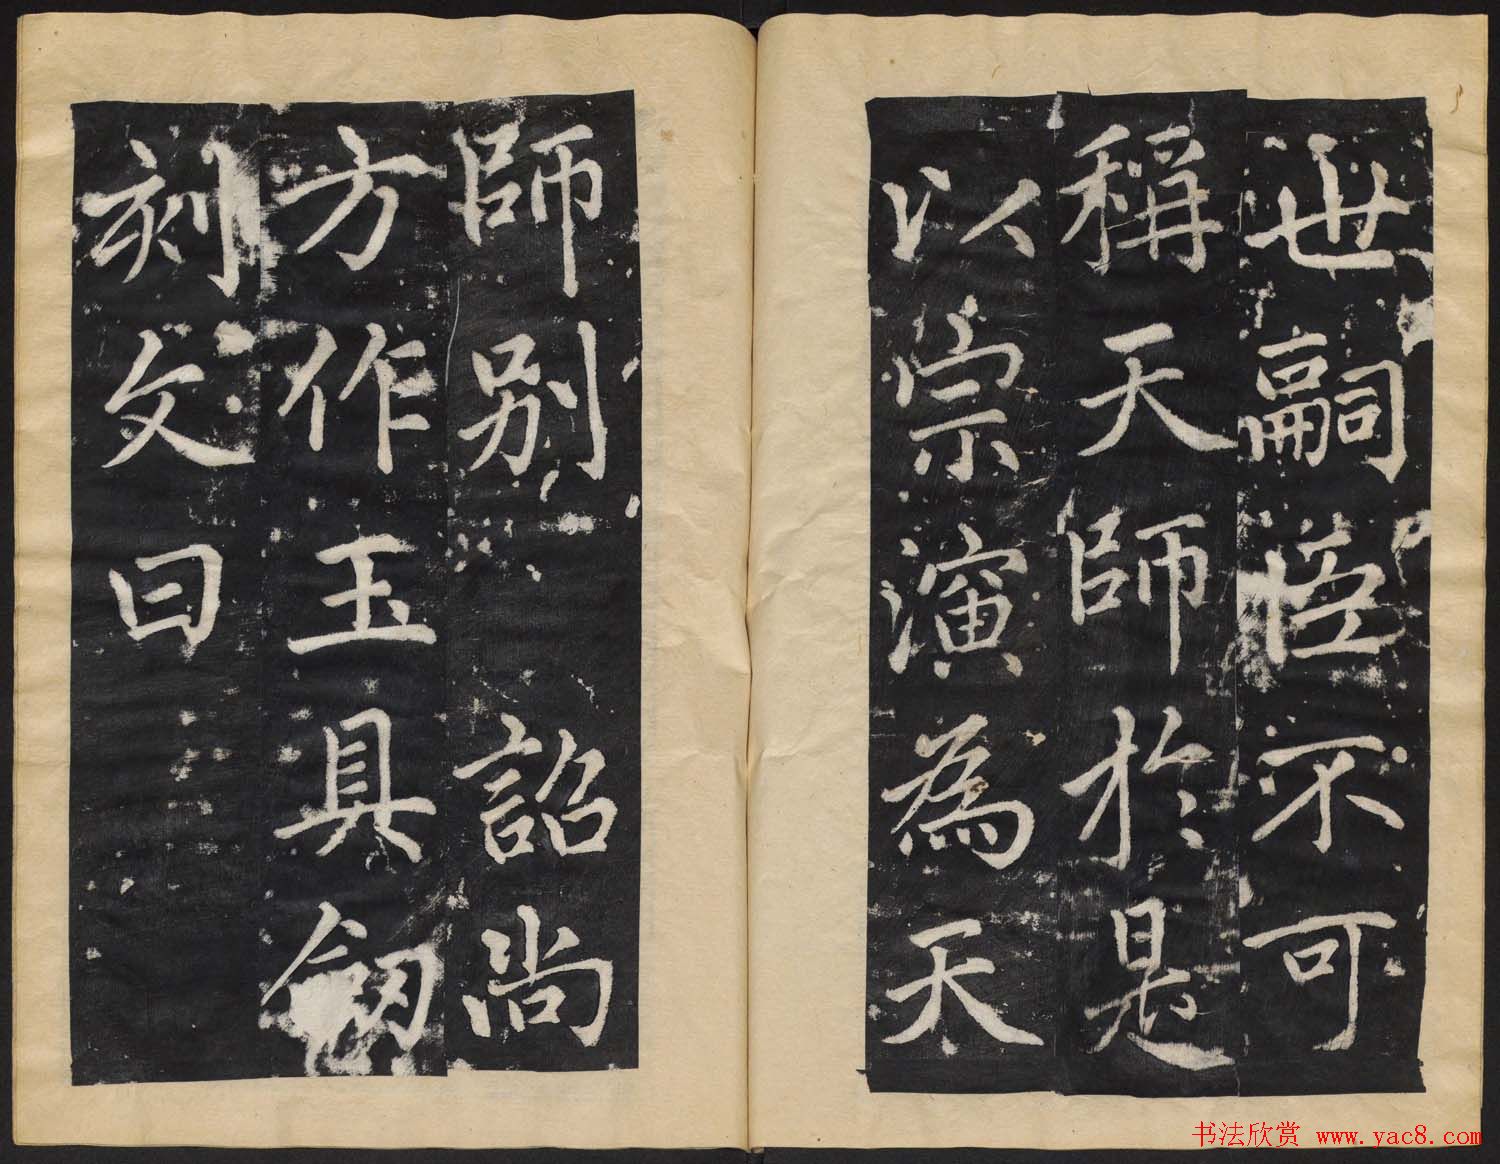 世嗣不可
稱天師於是
以宗演為天
師別 詔尚
方作玉具劒
刻文曰
书法欣赏 www.yac8.com